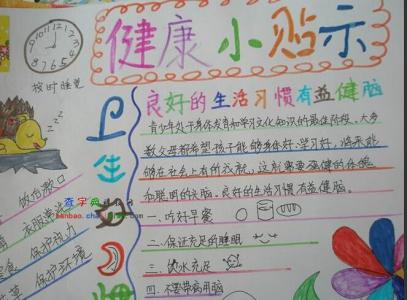 健康小贴示
12 1 2 3 4 5 6 7 8 9 10 11
按时睡觉
zzz
卫生
良好的生活习惯有益健脑
青少年处于身体发育和学习文化知识的最佳阶段。大
多数父母都希望孩子能够身体好、学习好,将来能
够在社会上有所成就,这就需要强健的体魄
和聪明的大脑。良好的生活习惯有益健脑。
一、吃好早餐
二、保证充足的睡眠
三、饮水充足
四、不要带病用脑
饭后漱口
衣服常
保护视力
保护环境
查字典